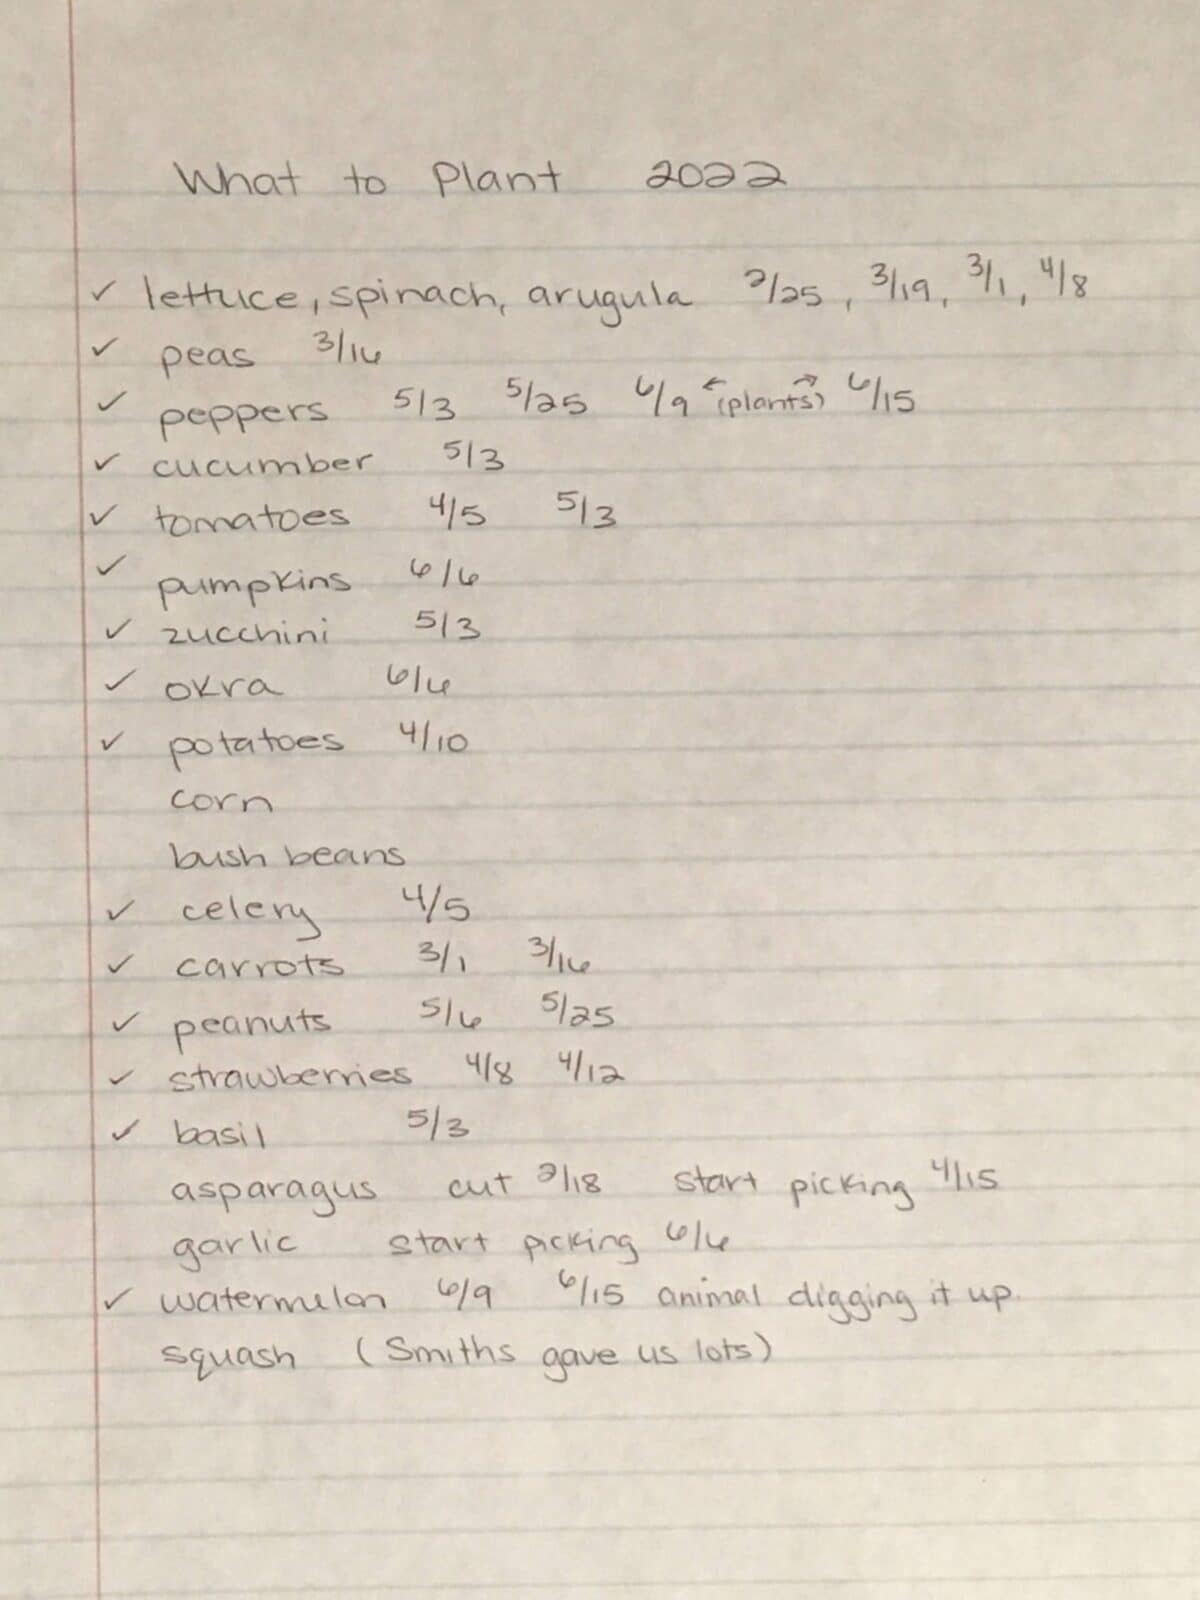 What to Plant 2022
✓ lettuce, spinach, arugula 2/25, 3/19, 3/1, 4/8
✓ peas 3/16
✓ peppers 5/3 5/25 6/9 ← (plants) → 6/15
✓ cucumber 5/3
✓ tomatoes 4/5 5/3
✓ pumpkins 6/6
✓ zucchini 5/3
✓ okra 6/6
✓ potatoes 4/10
corn
bush beans
✓ celery 4/5
✓ carrots 3/1 3/16
✓ peanuts 5/6 5/25
✓ strawberries 4/8 4/12
✓ basil 5/3
asparagus cut 2/18 start picking 4/15
garlic start picking 6/6
✓ watermelon 6/9 6/15 animal digging it up.
squash (Smiths gave us lots)